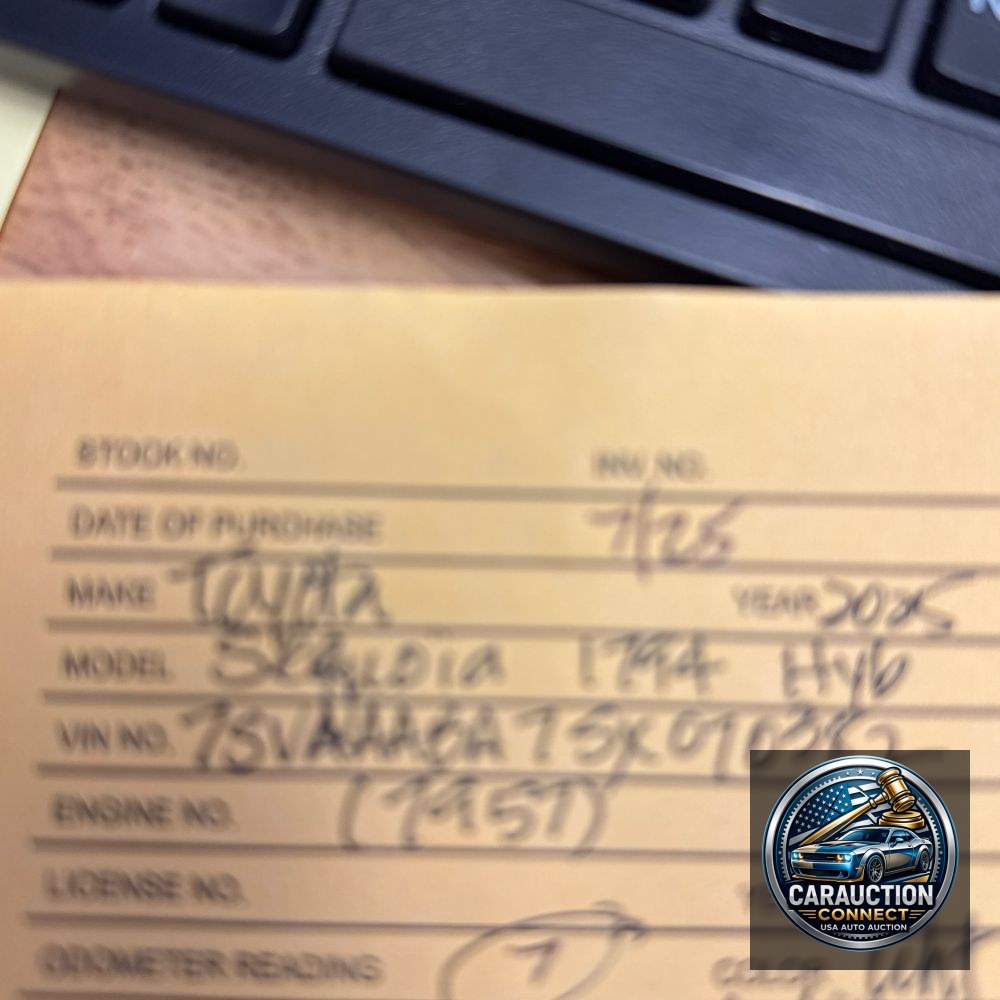 STOCK NO. INV. NO.
DATE OF PURCHASE 7/25
MAKE Toyota YEAR 2025
MODEL Sequoia 1794 Hyb
VIN NO.
ENGINE NO.
LICENSE NO.
ODOMETER READING 7 COLOR Wht
CARAUCTION
CONNECT
USA AUTO AUCTION